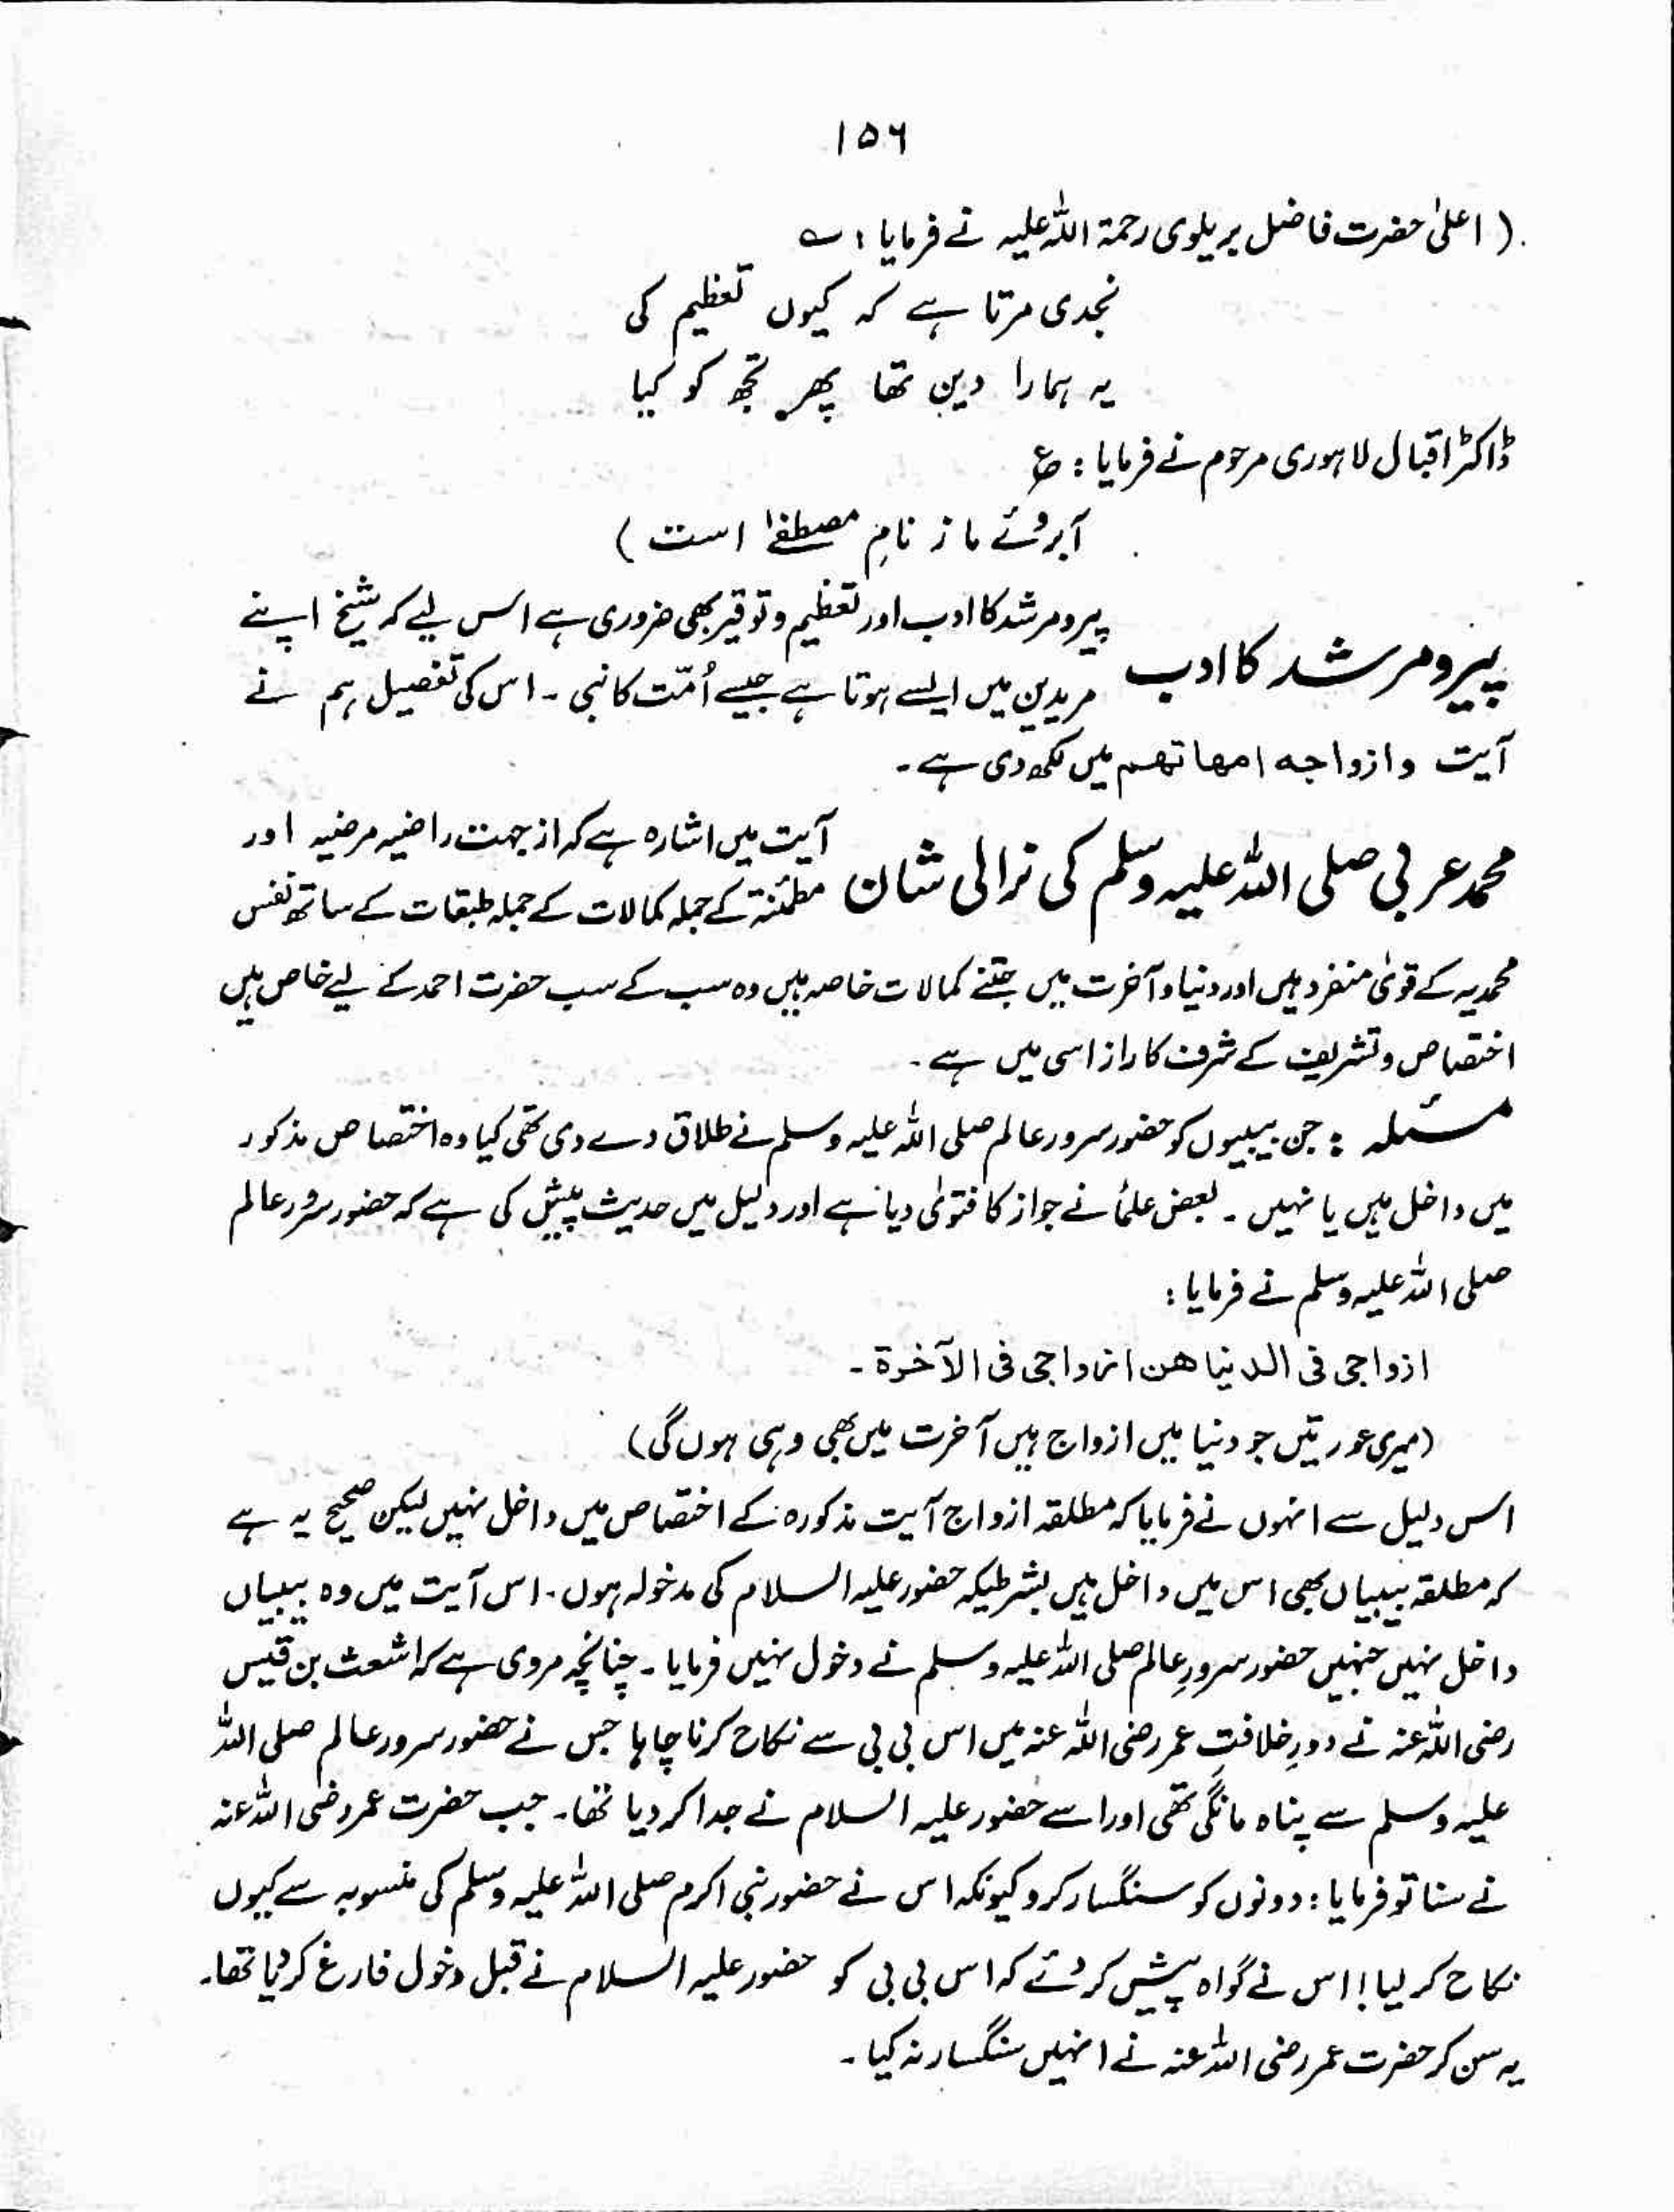 ۱۵۶
( اعلیٰ حضرت فاضل بریلوی رحمۃ اللہ علیہ نے فرمایا : ؎
نجدی مرتا ہے کہ کیوں تعظیم کی
یہ ہمارا دین تھا پھر تجھ کو کیا
ڈاکٹر اقبال لاہوری مرحوم نے فرمایا : ع
آبروئے ما ز نامِ مصطفےٰ است )
پیر و مرشد کا ادب
پیر و مرشد کا ادب اور تعظیم و توقیر بھی ضروری ہے اس لیے کہ شیخ اپنے
مریدین میں ایسے ہوتا ہے جیسے اُمّت کا نبی ۔ اس کی تفصیل ہم نے
آیت وازواجه امهاتهم میں لکھ دی ہے ۔
محمد عربی صلی اللہ علیہ وسلم کی نرالی شان
آیت میں اشارہ ہے کہ از جہت راضیہ مرضیہ اور
مطمئنۃ کے جملہ کمالات کے جملہ طبقات کے ساتھ نفس
محمدیہ کے قویٰ منفرد ہیں اور دنیا و آخرت میں جتنے کمالات خاصہ ہیں وہ سب کے سب حضرت احمد کے لیے خاص ہیں
اختصاص و تشریف کے شرف کا راز اسی میں ہے ۔
مسئلہ : جن بیبیوں کو حضور سرور عالم صلی اللہ علیہ وسلم نے طلاق دے دی تھی کیا وہ اختصاص مذکور
میں داخل ہیں یا نہیں ۔ بعض علماء نے جواز کا فتویٰ دیا ہے اور دلیل میں حدیث پیش کی ہے کہ حضور سرور عالم
صلی اللہ علیہ وسلم نے فرمایا :
ازواجی فی الدنیا هن ازواجی فی الآخرة ۔
(میری عورتیں جو دنیا میں ازواج ہیں آخرت میں بھی وہی ہوں گی)
اس دلیل سے انہوں نے فرمایا کہ مطلقہ ازواج آیت مذکورہ کے اختصاص میں داخل نہیں لیکن صحیح یہ ہے
کہ مطلقہ بیبیاں بھی اس میں داخل ہیں بشرطیکہ حضور علیہ السلام کی مدخولہ ہوں ۔ اس آیت میں وہ بیبیاں
داخل نہیں جنہیں حضور سرورِ عالم صلی اللہ علیہ وسلم نے دخول نہیں فرمایا ۔ چنانچہ مروی ہے کہ اشعث بن قیس
رضی اللہ عنہ نے دورِ خلافتِ عمر رضی اللہ عنہ میں اس بی بی سے نکاح کرنا چاہا جس نے حضور سرور عالم صلی اللہ
علیہ وسلم سے پناہ مانگی تھی اور اسے حضور علیہ السلام نے جدا کر دیا تھا ۔ جب حضرت عمر رضی اللہ عنہ
نے سنا تو فرمایا : دونوں کو سنگسار کرو کیونکہ اس نے حضور نبی اکرم صلی اللہ علیہ وسلم کی منسوبہ سے کیوں
نکاح کر لیا ! اس نے گواہ پیش کر دئے کہ اس بی بی کو حضور علیہ السلام نے قبل دخول فارغ کر دیا تھا ۔
یہ سن کر حضرت عمر رضی اللہ عنہ نے انہیں سنگسار نہ کیا ۔